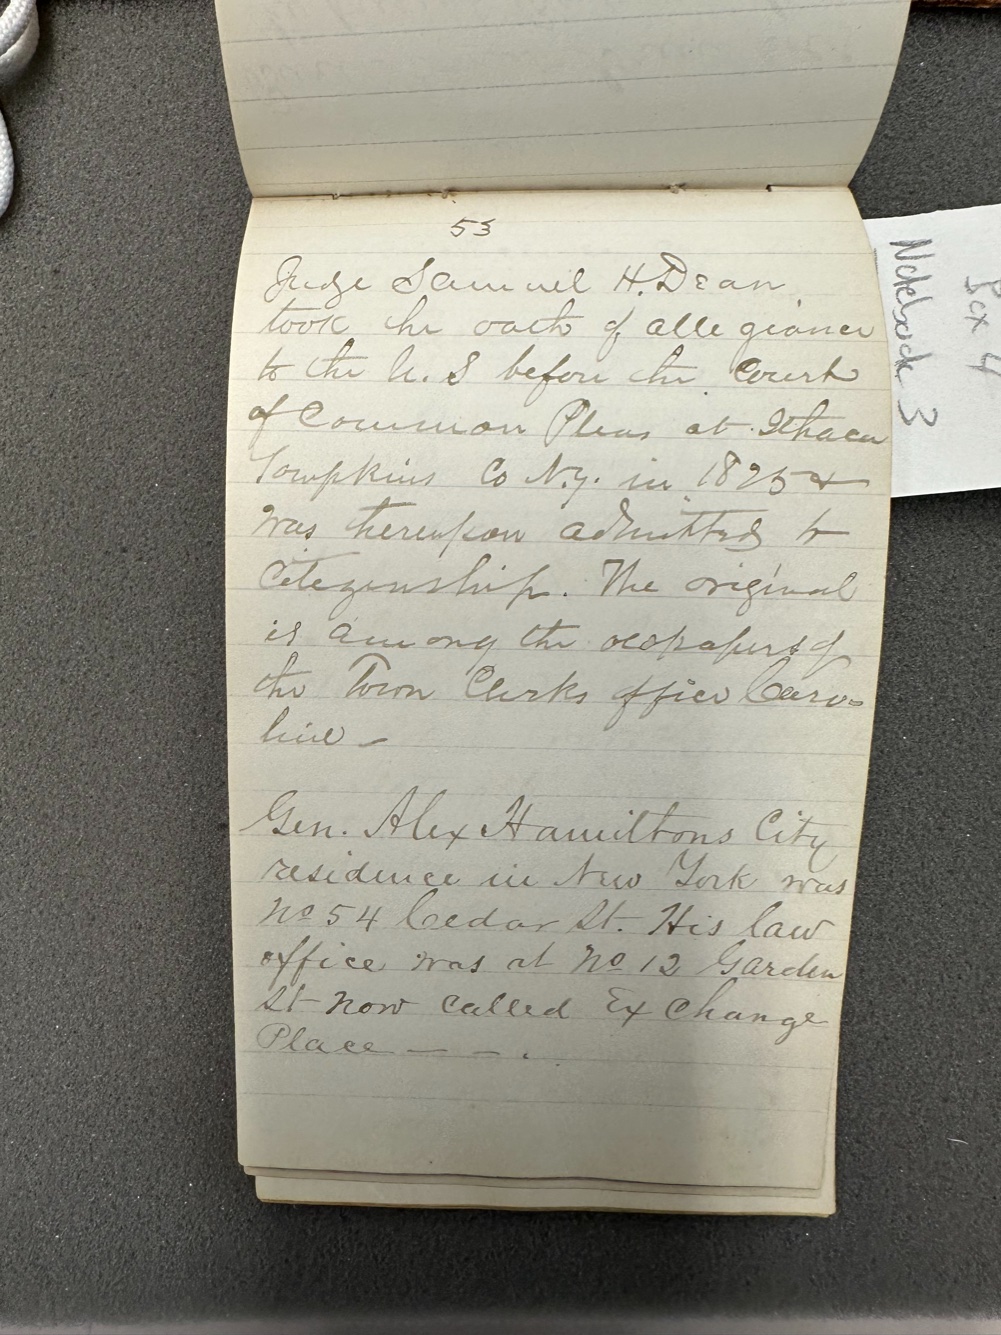 53
Judge Samuel H. Dean
took the oath of allegiance
to the U.S before the Court
of Common Pleas at Ithaca
Tompkins Co N.Y. in 1825 &
was thereupon admitted to
Citizenship. The original
is among the old papers of
the Town Clerks office Caro=
line –
Gen. Alex Hamiltons City
residence in New York was
No 54 Cedar St. His law
office was at No 12 Garden
St now called Ex Change
Place — — - .
Box 4
Notebook 3